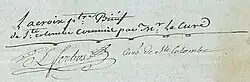 Lacroix ptre Brieif
de Ste Colombe commis par Mr le Curé
Curé de Ste Colombe